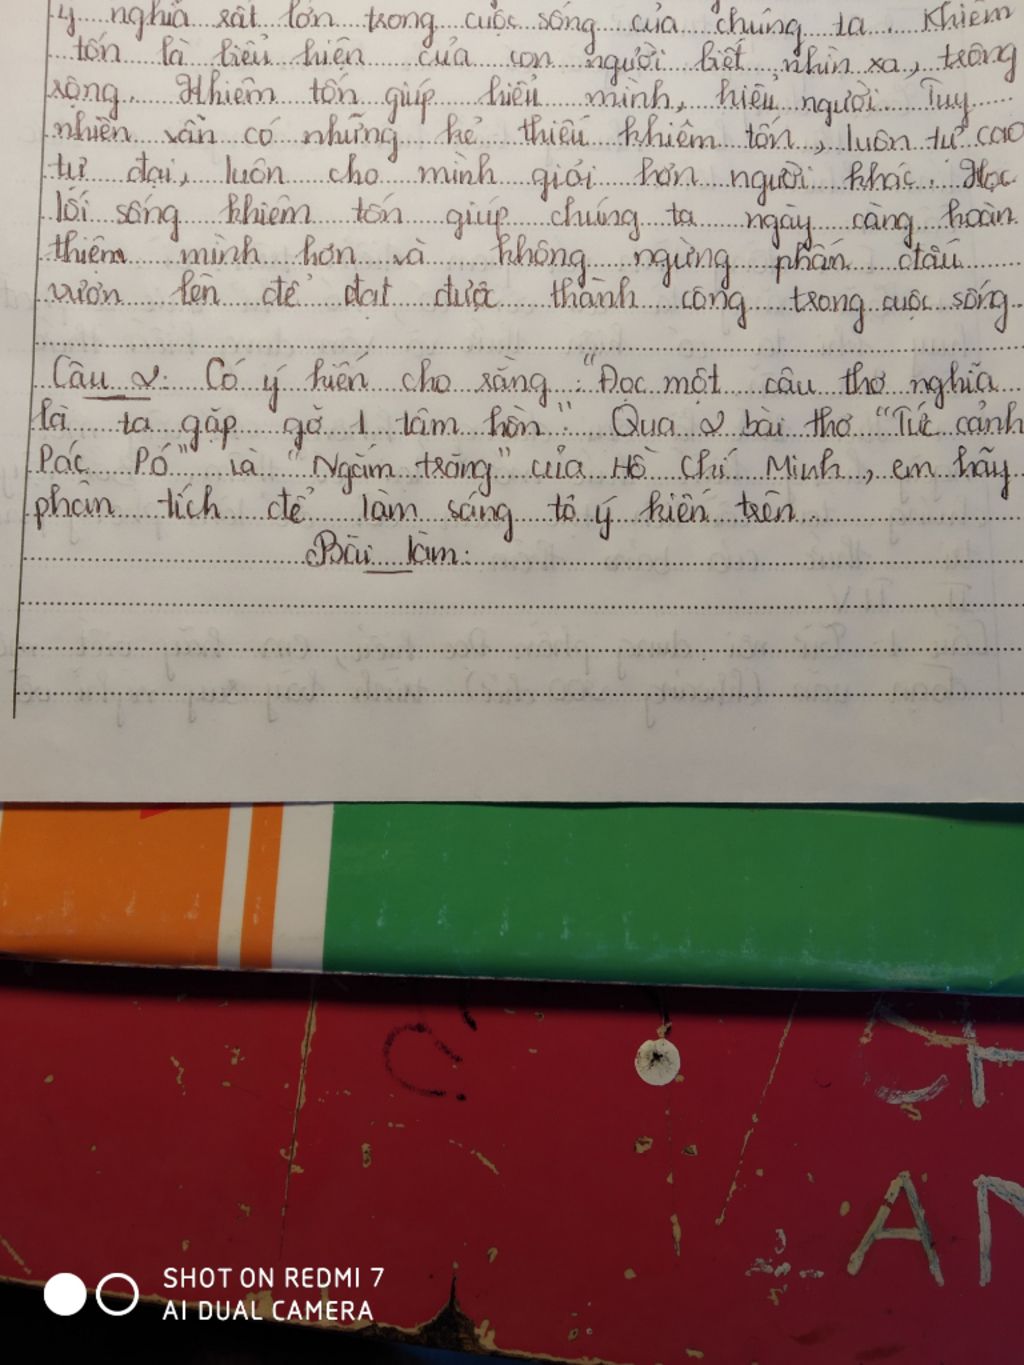 ý nghĩa rất lớn trong cuộc sống của chúng ta. Khiêm
tốn là biểu hiện của con người biết nhìn xa, trông
rộng. Khiêm tốn giúp hiểu mình, hiểu người. Tuy
nhiên vẫn có những kẻ thiếu khiêm tốn, luôn tự cao
tự đại, luôn cho mình giỏi hơn người khác. Học
lối sống khiêm tốn giúp chúng ta ngày càng hoàn
thiện mình hơn và không ngừng phấn đấu
vươn lên để đạt được thành công trong cuộc sống.
Câu 2: Có ý kiến cho rằng: "Đọc một câu thơ nghĩa
là ta gặp gỡ 1 tâm hồn". Qua 2 bài thơ "Tức cảnh
Pác Pó" và "Ngắm trăng" của Hồ Chí Minh, em hãy
phân tích để làm sáng tỏ ý kiến trên.
Bài làm:
AN
SHOT ON REDMI 7
AI DUAL CAMERA